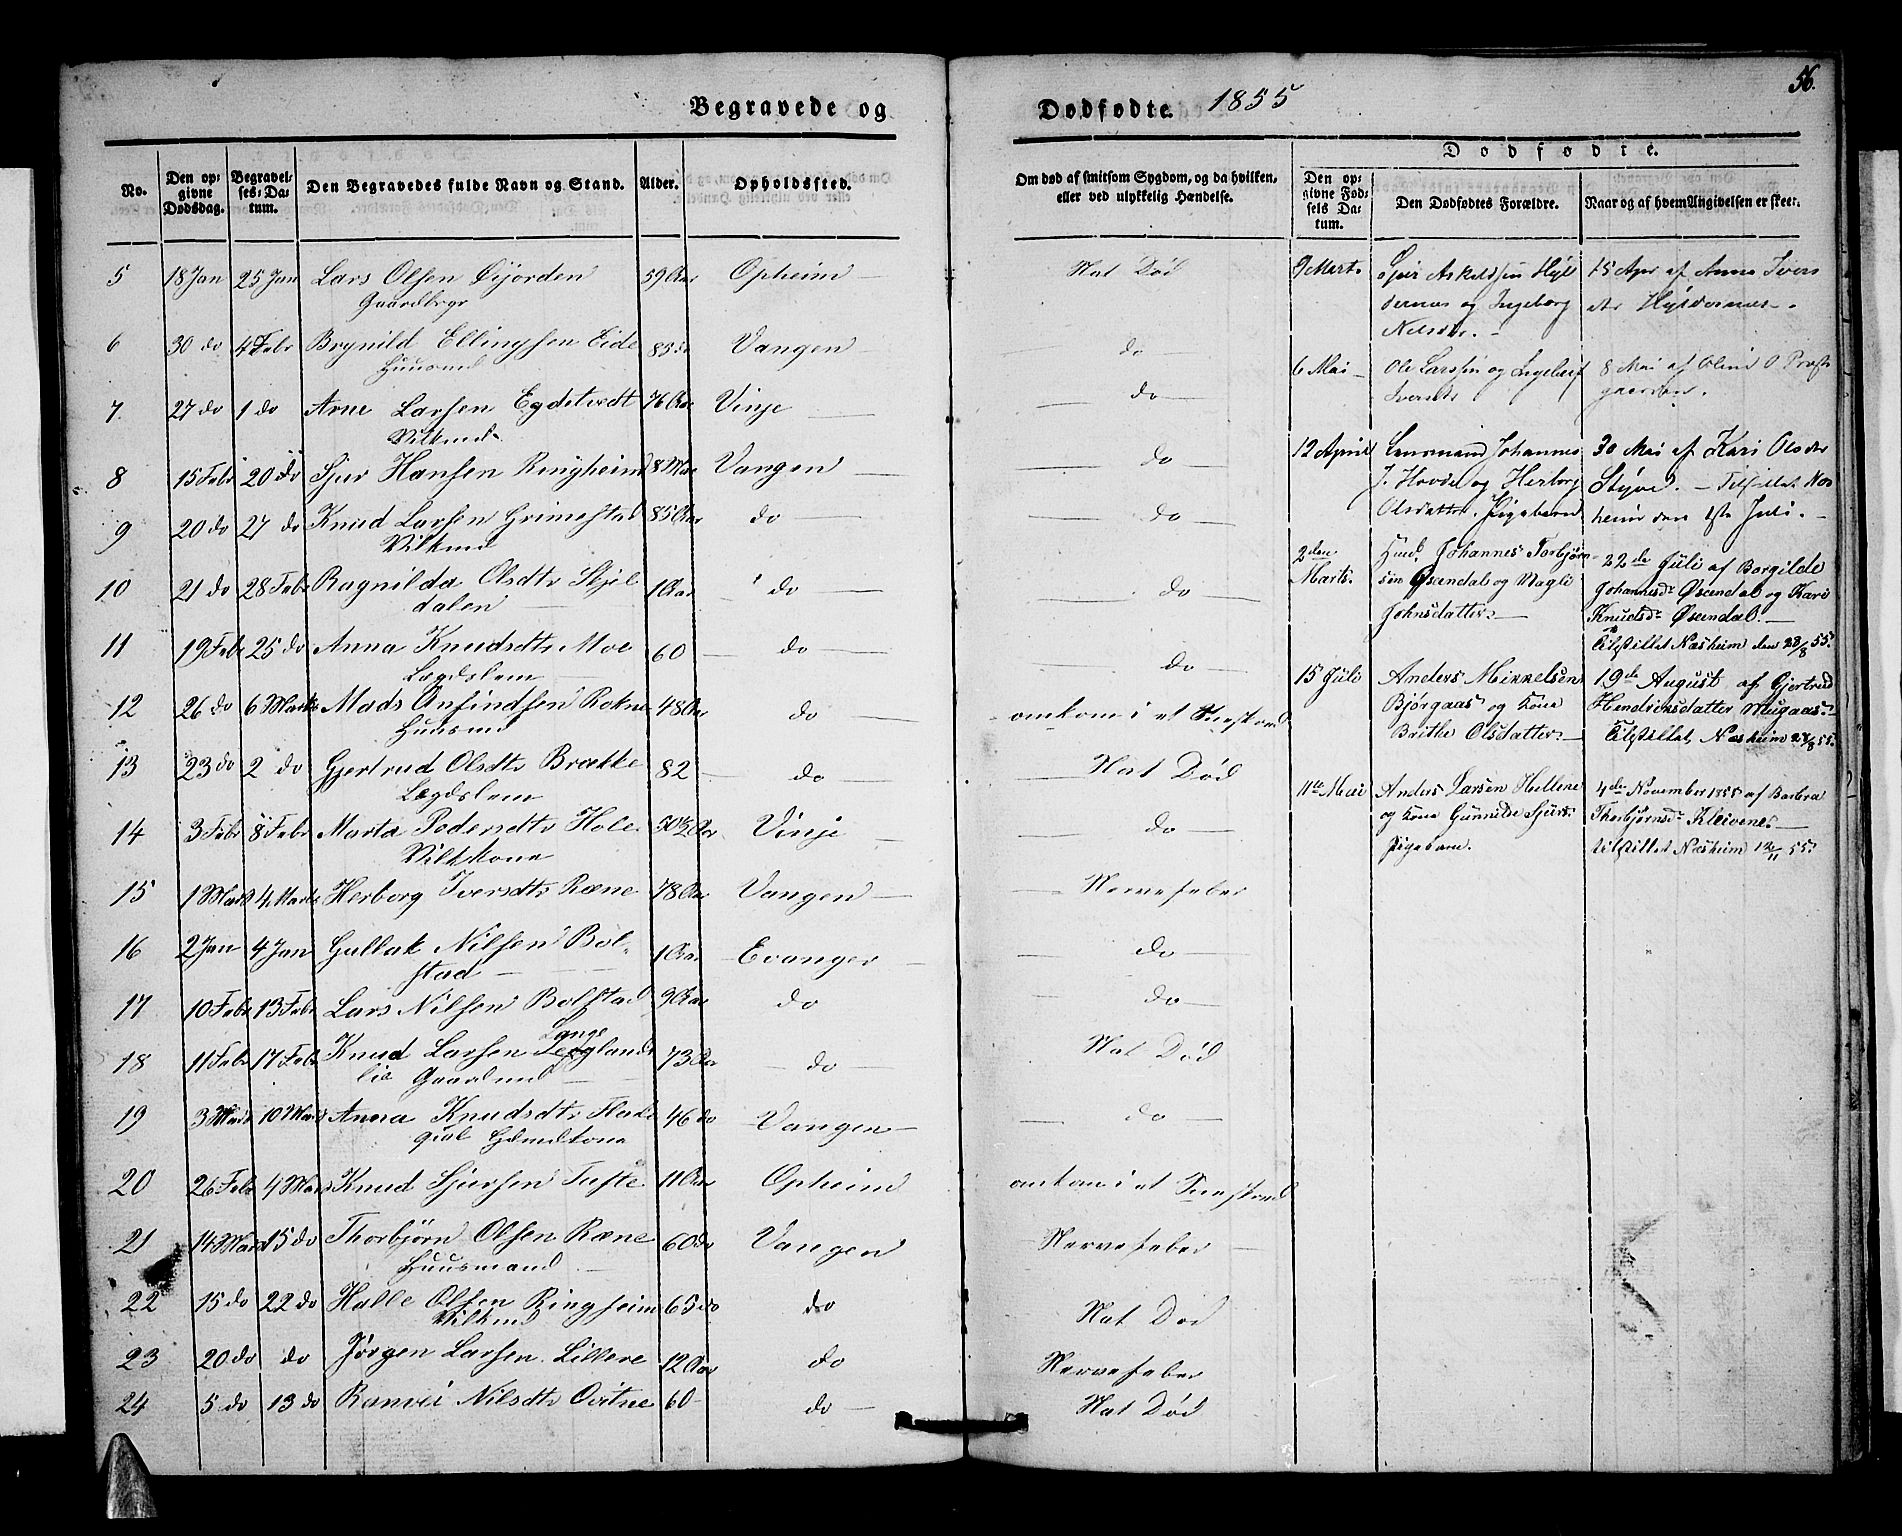 56.
Begravede og
Dødfødte. 1855
No.
Den opgivne Dødsdag.
Begravelses-Datum.
Den Begravedes fulde Navn og Stand.
Alder.
Opholdssted.
Om død af smitsom Sygdom, og da hvilken, eller ved ulykkelig Hændelse.
Dødfødte.
Den opgivne Fødsels Datum.
Den Dødfødtes Forældre.
Naar og af hvem Angivelsen er skeet.
5 18 Jan 25 Jan Lars Olsen 59 Aar Opheim — Nat Død
6 30 do 4 Febr Brynild Ellingsen Eide 85 do Vangen — do —
Huusmd
7. 27 do 1 do Arne Larsen Egdetvedt 76 Aar Vinje — do —
Vilkmd.
8 15 Febr 20 do Sjur Hansen Ringheim 8 Vangen — do —
9 20 do 27 do Knud Larsen Grimestad 85 Aar do — do —
Vilkmd
10 21 do 28 Febr Ragnilda Olsdtr Skjel 1 Aar do — do —
dalen —
11 19 Febr 25 do Anna Knudsdtr Moe 60 — do — do —
Lægdslem —
12 26 do 6 Marts Mads Anfindsen Rokne 48 Aar do — omkom i et Sneskred
Huusmd
13 23 do 2 do Gjertrud Olsdtr Brække 82 — do — Nat Død
Lægdslem
14 3 Febr 8 Febr Marta Pedersdtr Hole 50½ Aar Vinje — do —
Vilkkone
15 1 Marts 4 Marts Herborg Iversdtr Ræne 78 Aar Vangen — Nervefeber
16 2 Jan 4 Jan Gullak Nilsen Bol- 1 Aar Evanger — do —
stad —
17 10 Febr 13 Febr Lars Nilsen Bolstad 9 Aar do — do —
18 11 Febr 17 Febr Knud Larsen 73 Aar — do — Nat Død
lie Gaardmd —
19 3 Marts 10 Marts Anna Knudsdtr Flat 46 do Vangen — do —
20 26 Febr 4 Marts Knud Sjursen Tufte 11 Aar Opheim omkom i et Sneskred
21 14 Marts 15 do Thorbjørn Olsen Ræne 60 do Vangen Nervefeber —
Huusmand
22 15 do 22 do Halle Olsen Ringheim 65 do do Nat Død
Vilkmd
23 20 do do Jørgen Larsen Lillere 12 Aar do Nervefeber
24 5 do 13 do Ranvei Nilsdtr 60 — do — Nat Død
9 Marts Sjur Askeldsen Hyl 15 Apr af Anna Ivers
dernæs og Ingeborg dtr Hyldernæs.
Nilsdtr. —
6 Mai — Ole Larssen og Ingeborg 8 Mai af Præste
Iversdtr gaarden.
12 April Lensmand Johannes 30 Mai af Kari Olsdtr
J. Hovde og Herborg Styve. — Tilstillet Næs
Olsdatter. Pigebarn heim den 1ste Juli. —
2den Marts. Husmd. Johannes Torbjørn- 22de Juli af Borgilde
sen Øsendal og Magli Johannesdr Øsendal og Kari
Johnsdatter. — Knudsdr Øsendal. —
Tilstillet Næsheim den 28/8 55.
15 Juli Anders Mikkelsen 19de August af Gjertrud
Bjørgaas og Kone Hendriksdatter Mugaas. —
Brithe Olsdatter. — Tilstillet Næsheim 28/8 55.
11te Mai Anders Larsen Hellene 4de November 1855 af Barbra
og Kone Gunnilde Sjurs- Thorbjørnsdr Kleivene. —
Pigebarn. tilstillet Næsheim 12/11 55.